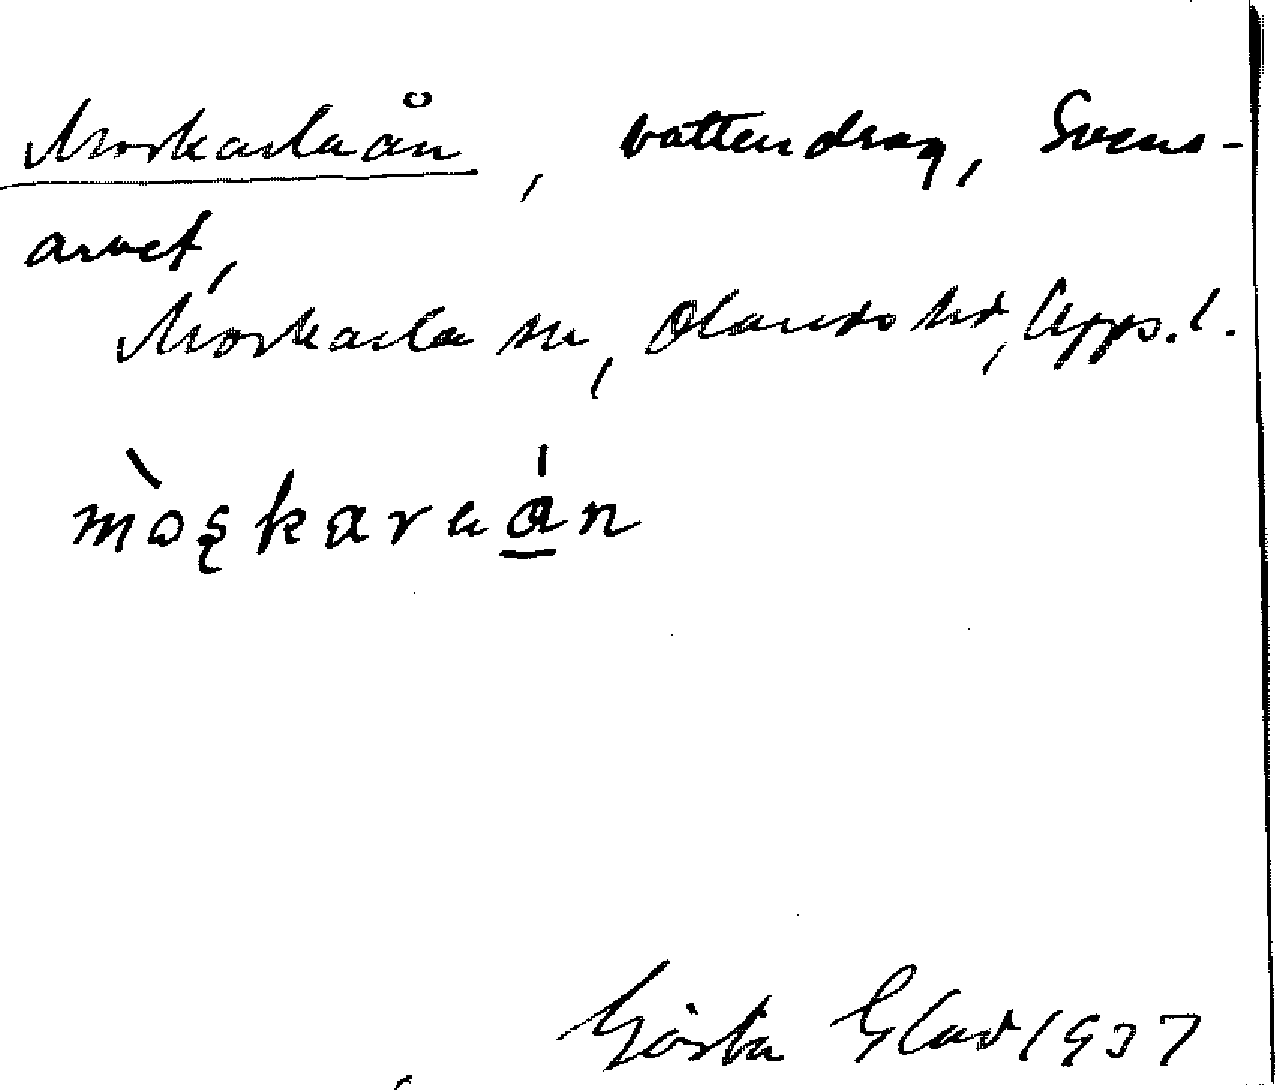 Morkarlaån, vattendrag, Svens-
arvet,
Morkarla sn, Olands hd, Upps. l.
Gösta Glad 1937